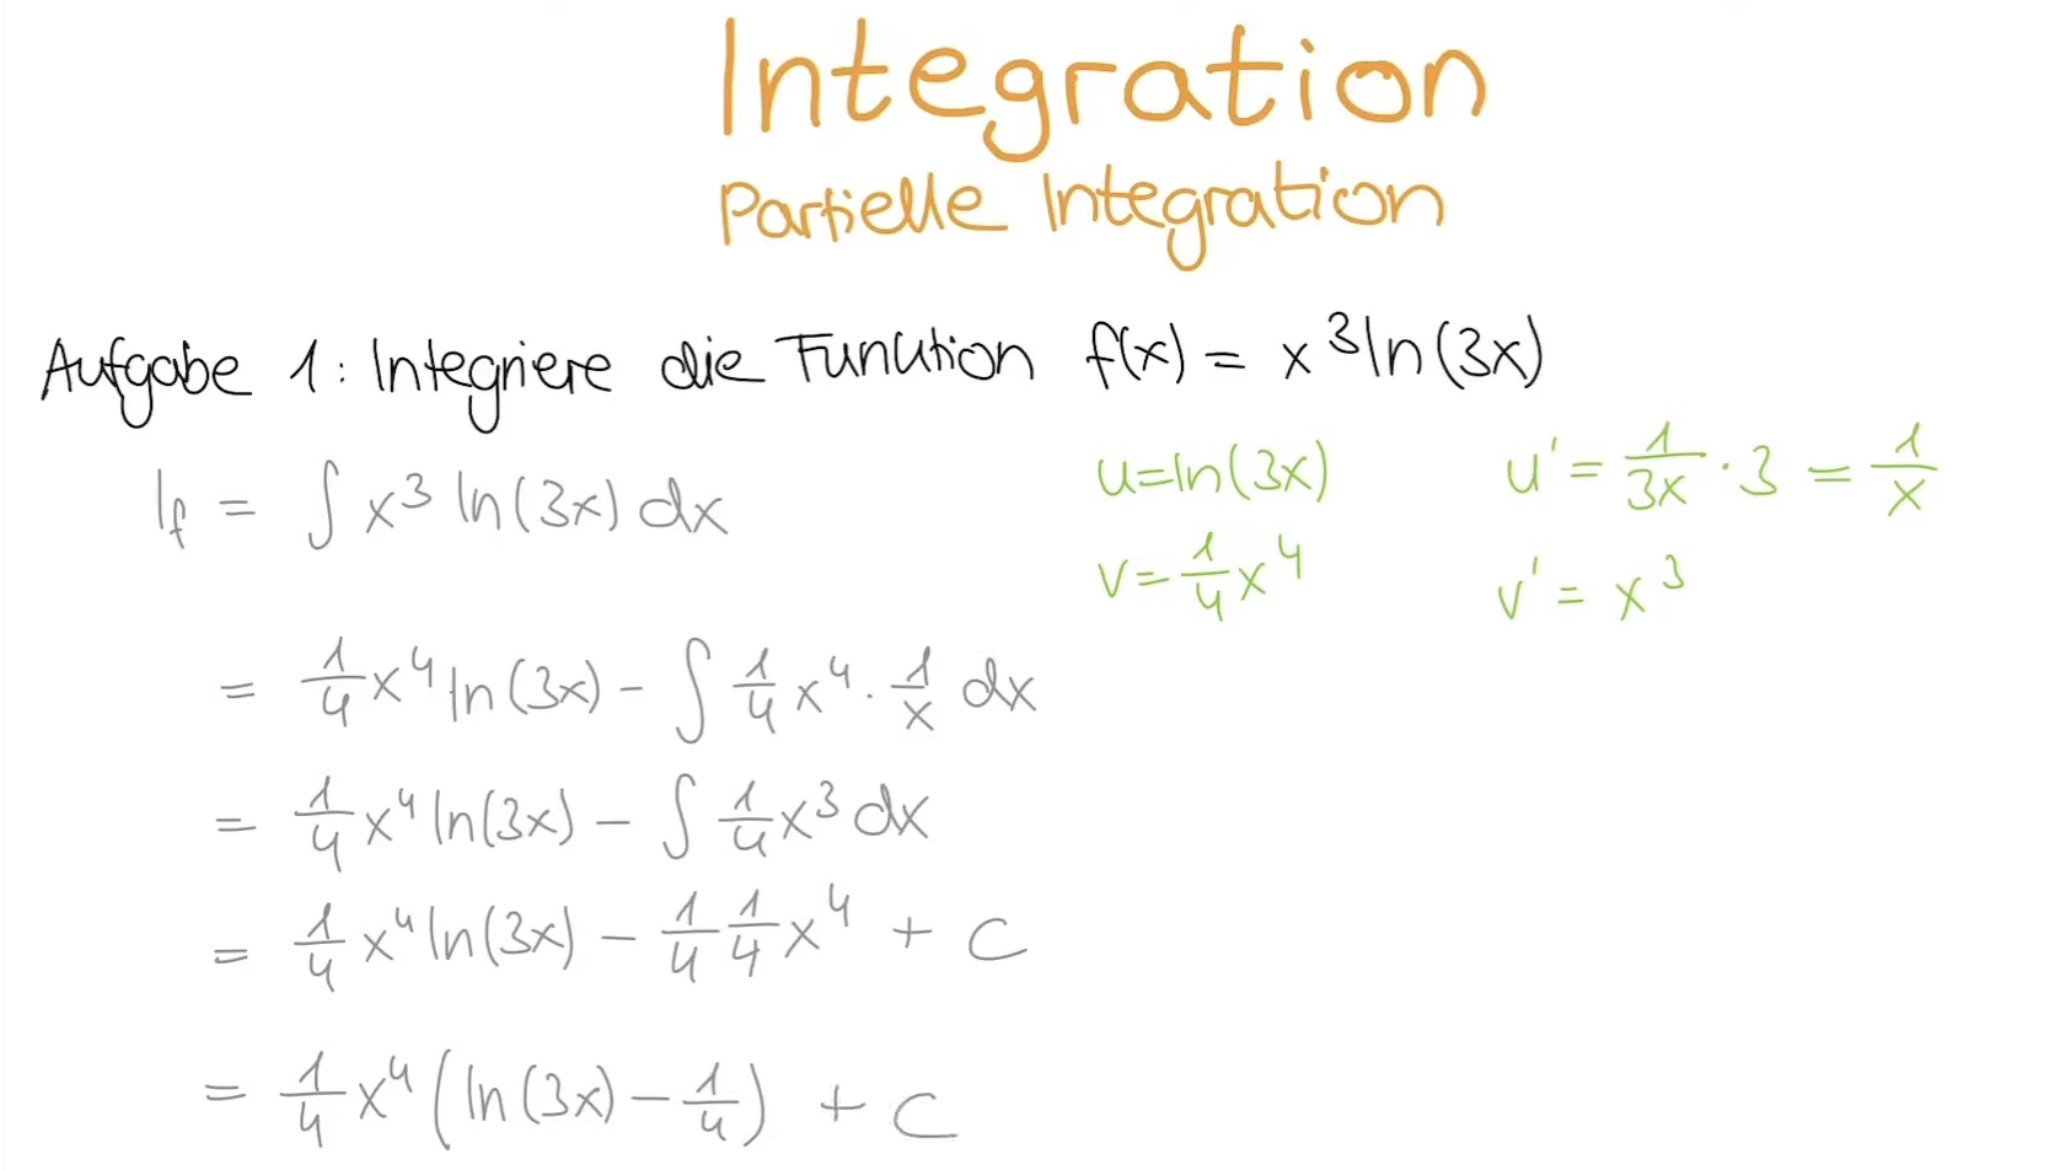 Integration
Partielle Integration
Aufgabe 1: Integriere die Funktion f(x) = x³ ln(3x)
I_f = ∫ x³ ln(3x) dx
u = ln(3x) u' = 1/(3x) · 3 = 1/x
v = 1/4 x⁴ v' = x³
= 1/4 x⁴ ln(3x) - ∫ 1/4 x⁴ · 1/x dx
= 1/4 x⁴ ln(3x) - ∫ 1/4 x³ dx
= 1/4 x⁴ ln(3x) - 1/4 1/4 x⁴ + C
= 1/4 x⁴ (ln(3x) - 1/4) + C